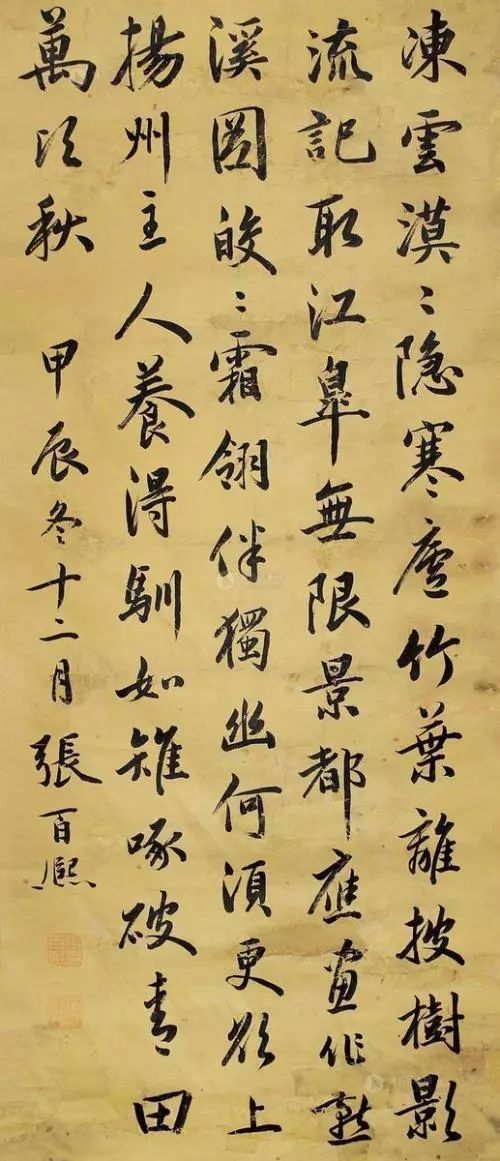 凍雲漠〻隱寒廬竹葉離披樹影
流記取江皋無限景都應畫作
溪圖皎〻霜翎伴獨幽何須更欲上
揚州主人養得馴如雉啄破青田
萬頃秋
甲辰冬十二月張百熙